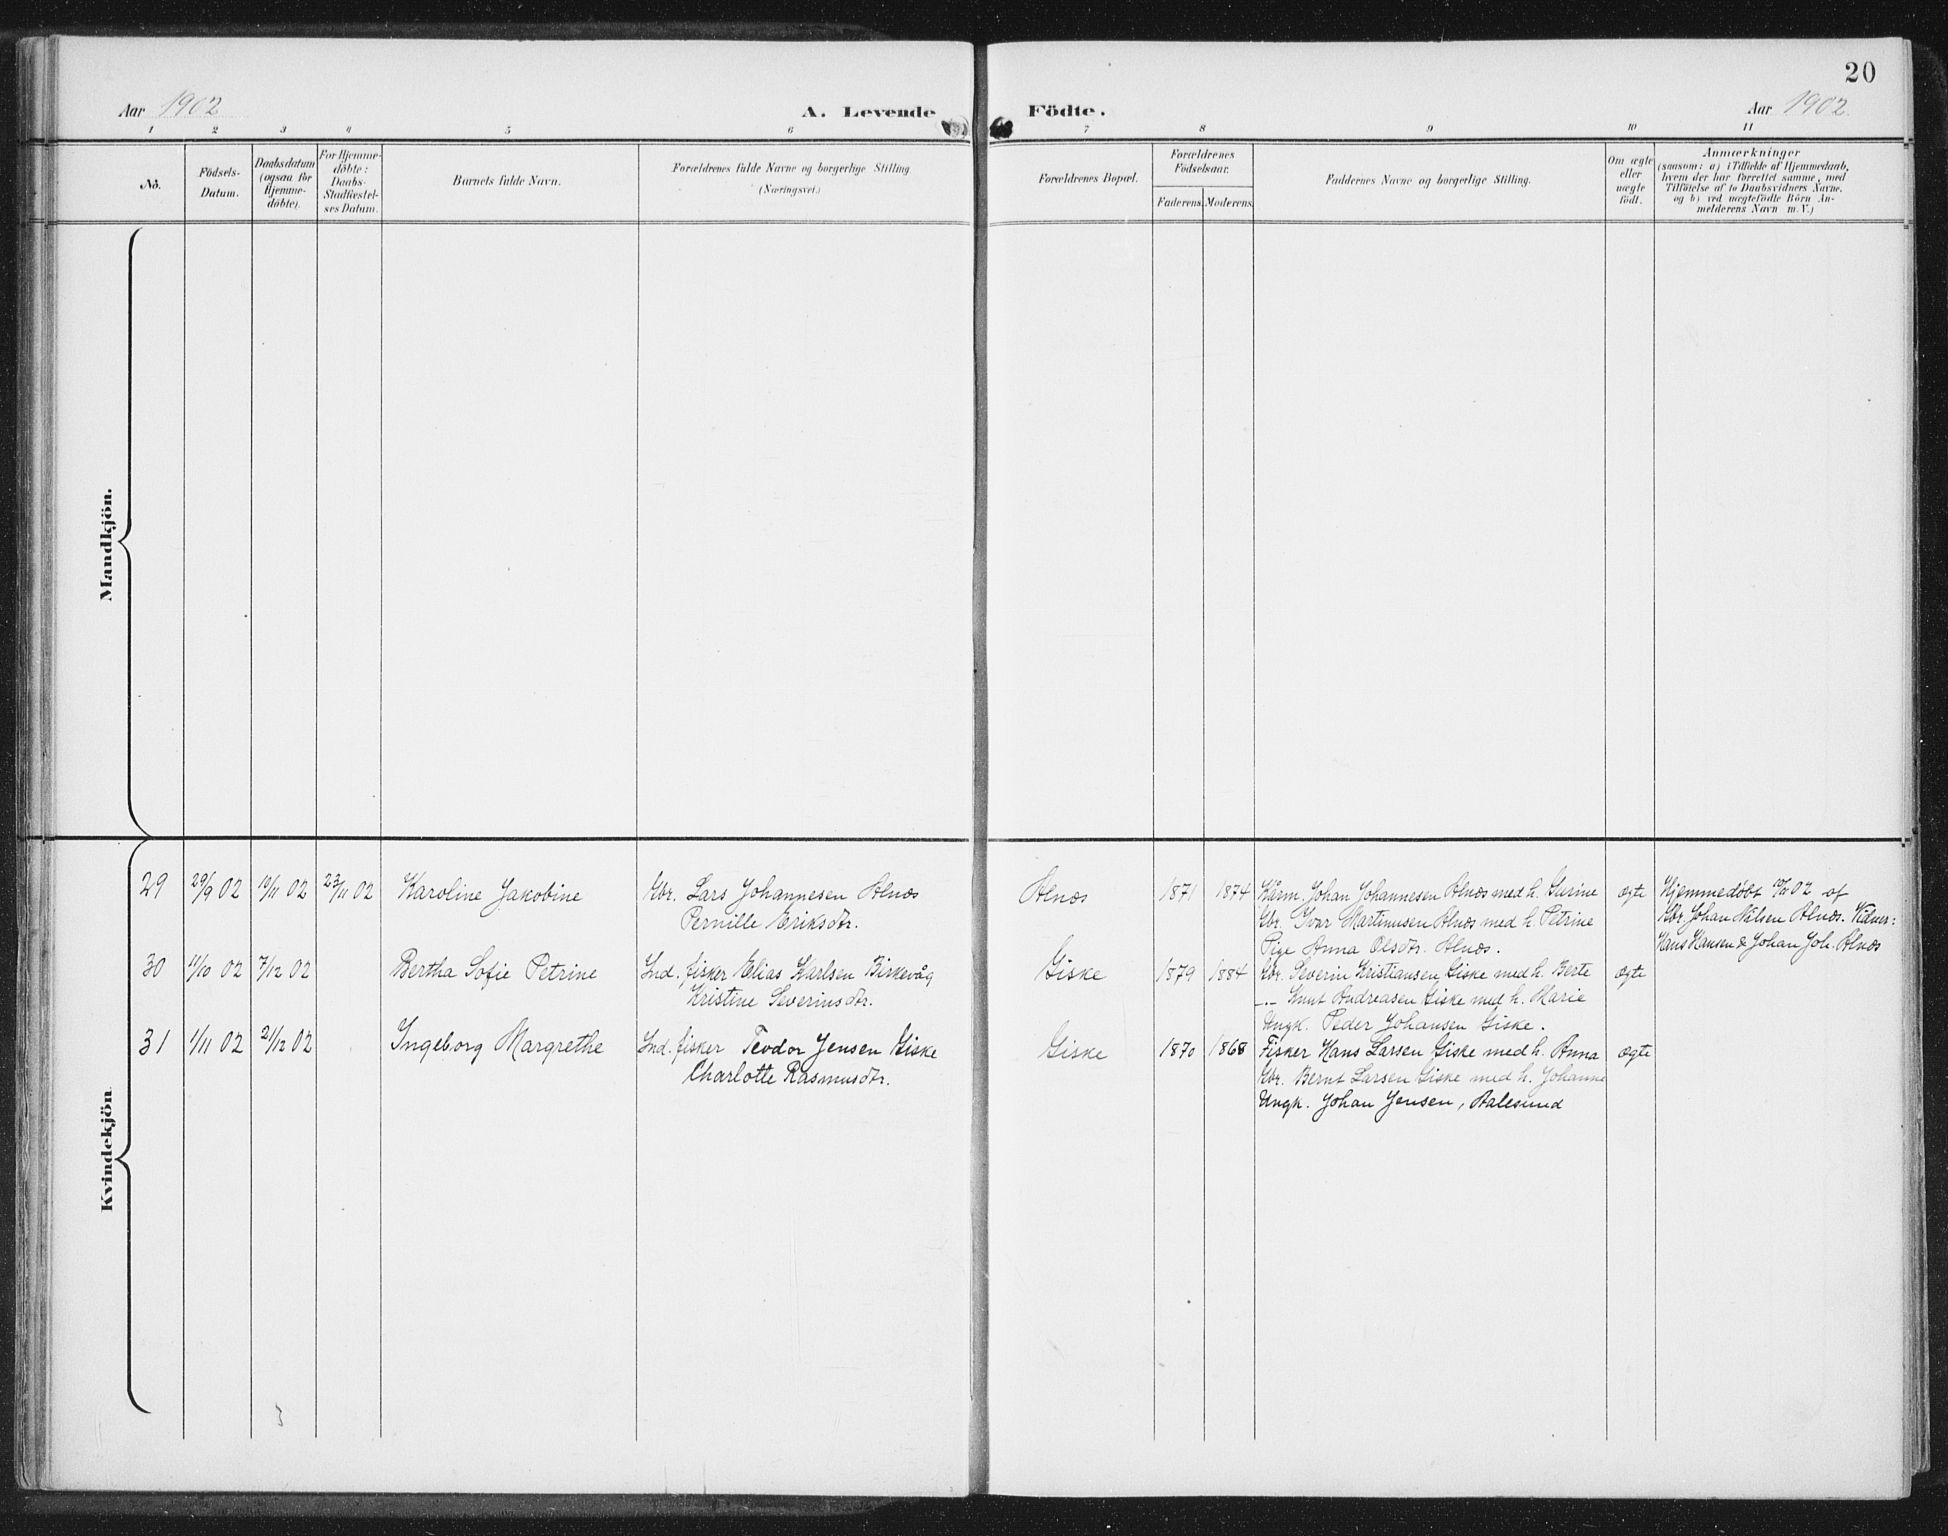 20
Aar 1902
A. Levende
Födte.
Aar 1902.
1 2 3 4 5 6 7 8 9 10 11
No.
Födsels-
Datum.
Daabsdatum
(ogsaa for
Hjemme-
döbte).
For Hjemme-
döbte:
Daabs-
Stadfæstel-
ses Datum.
Barnets fulde Navn.
Forældrenes fulde Navne og borgerlige Stilling
(Næringsvei.)
Forældrenes Bopæl.
Forældrenes
Födselsaar.
Faderens. Moderens.
Faddernes Navne og borgerlige Stilling.
Om ægte
eller
uægte
födt.
Anmærkninger
(saasom: a) i Tilfælde af Hjemmedaab,
hvem der har forrettet samme, med
Tilföielse af to Daabsvidners Navne,
og b) ved uægtefödte Börn An-
melderens Navn m. V.)
Mandkjön.
Kvindekjön.
29 29/9 02 12/11 02 23/11 02 Karoline Jakobine Gbr. Lars Johannesen Alnæs Alnæs 1871 1874 Kårm. Johan Johannesen Alnæs med h. Gurine ægte Hjemmedöbt 12/11 02 af
Pernille Eriksdtr. Gbr. Ivar Martinusen Alnæs med h. Petrine Gbr. Johan Nilsen Alnæs. Vidner:
Pige Anna Olsdtr. Alnæs. Hans Hansen & Johan Joh. Alnæs
30 11/10 02 7/12 02 Bertha Sofie Petrine Ind. fisker Elias Karlsen Birkevåg Giske 1879 1884 Gbr. Severin Kristiansen Giske med h. Berte ægte
Kristine Severinsdtr. -"- Knut Andreasen Giske med h. Marie
Ungk. Peder Johansen Giske.
31 1/11 02 21/12 02 Ingeborg Margrethe Ind. fisker Teodor Jensen Giske Giske 1870 1868 Fisker Hans Larsen Giske med h. Anna ægte
Charlotte Rasmusdtr. Gbr. Bernt Larsen Giske med h. Johanne
Ungk. Johan Jensen, Aalesund
3